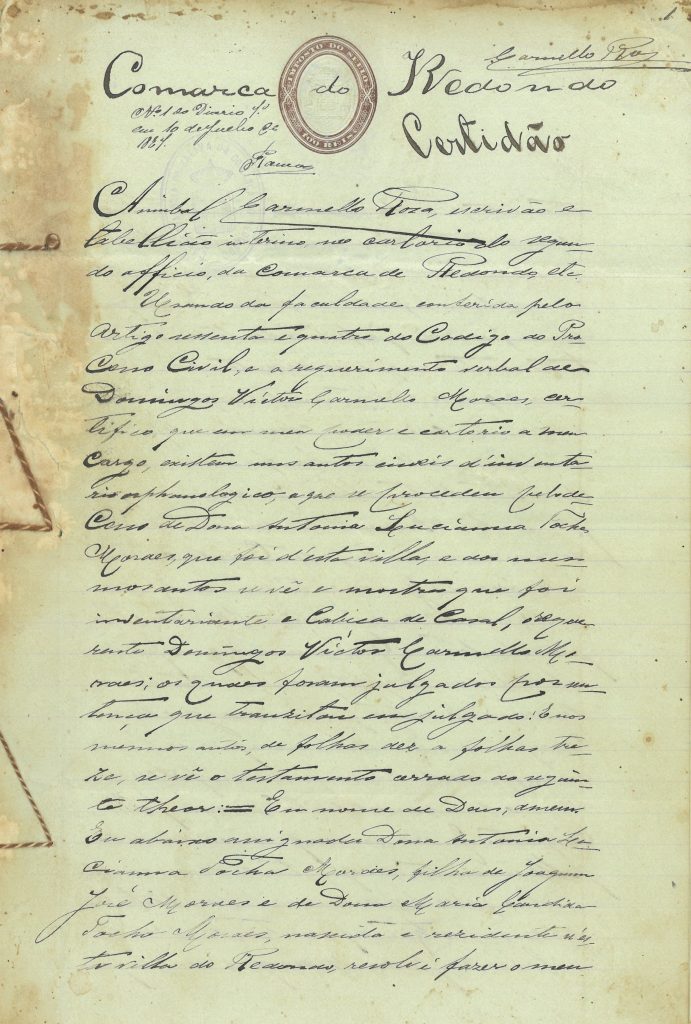 1
Carmello Roza
Comarca do Redondo
IMPOSTO DO SELLO
100 REIS
Nº 1 do Diario
em 10 de Julho de
1887.
Certidão
Annibal Carmello Roza, escrivão e
tabellião interino no cartorio do segun-
do officio, da comarca de Redondo, etc.
Usando da faculdade conferida pelo
artigo sessenta e quatro do Codigo do Pro-
cesso Civil, e a requerimento verbal de
Domingos Victor Carmello Moraes, cer-
tifico, que em meu poder e cartorio a meu
cargo, existem uns autos civeis d'inventa-
rio orphanologico, a que se procedeu por de-
cesso de Dona Antonia Lucianna Tocha
Moraes, que foi d'esta villa, e dos mes-
mos autos se vê e mostra que foi
inventariante e Cabeça de Casal, o reque-
rente Domingos Victor Carmello Mo-
raes; os quaes foram julgados por sen-
tença que tranzitou em julgado: E nos
mesmos autos, de folhas dez a folhas tre-
ze, se vê o testamento cerrado do seguin-
te theor: = Em nome de Deus, amem.
Eu abaixo assignada Dona Antonia Lu-
cianna Tocha Moraes, filha de Joaquim
José Moraes e de Dona Maria Candida
Tocha Moraes, nascida e rezidente n'es-
ta villa do Redondo, resolvi fazer o meu